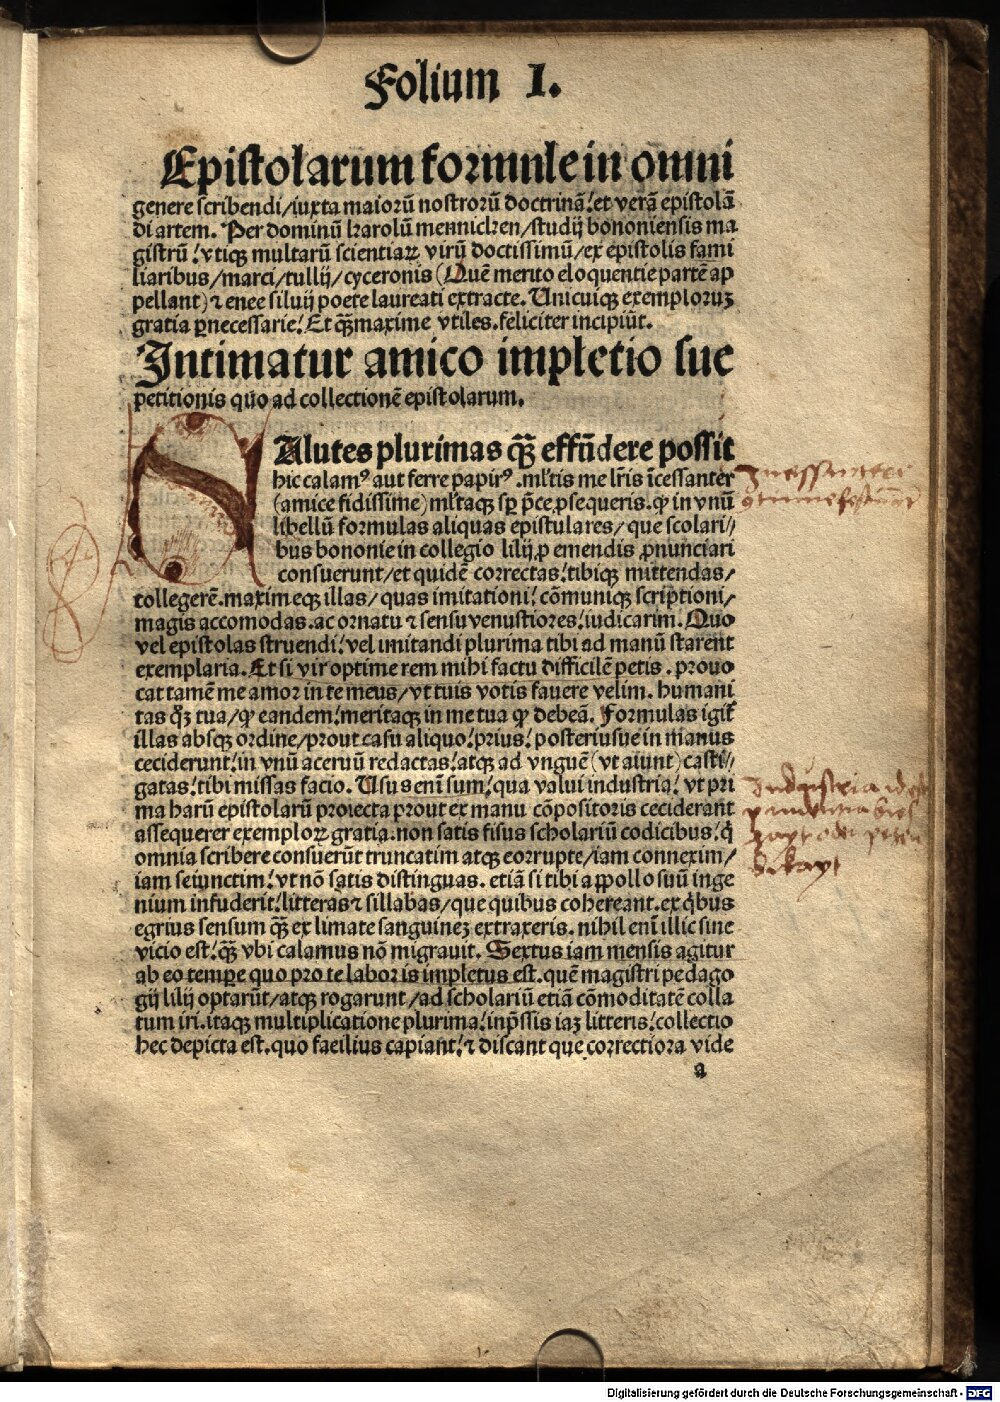 Folium I.
Epistolarum formule in om̄ni
genere scribendi/iuxta maiorū nostrorū doctrinā: et verā epistolā
di artem. Per dominū karolū mennicken/studij bononiensis ma
gistrū: vtiqꝫ multarū scientiaꝝ virū doctissimū/ex epistolis fami
liaribus/marci/tullij/cyceronis (Quē merito eloquentie partē ap
pellant) ⁊ enee siluij poete laureati extracte. Unicuiqꝫ exemploruꝫ
gratia ꝑnecessarie: Et qꝫ̄maxime vtiles. feliciter incipiūt.
Intimatur amico impletio sue
petitionis quo ad collectionē epistolarum.
SAlutes plurimas qꝫ̄ effūdere possit
hic calamꝰ aut ferre papirꝰ. ml̄tis me lr̄is īcessanter
(amice fidissime) ml̄taqꝫ sꝑ p̄ce ꝓsequeris. ꝙ in vnū
libellū formulas aliquas epistulares/que scolari//
bus bononie in collegio lilij ꝓ emendis ꝓnunciari
consuerunt/et quidē correctas: tibiqꝫ mittendas/
tollegerē. maximeqꝫ illas/quas imitationi: cōmuniqꝫ scriptioni/
magis accomodas. ac ornatu ⁊ sensu venustiores: iudicarim. Quo
vel epistolas struendi: vel imitandi plurima tibi ad manū starent
exemplaria. Et si vir optime rem mihi factu difficilē petis. prouo
cat tamē me amor in te meus/vt tuis votis fauere velim. humani
tas qꝫ̄ tua/ꝙ eandem: meritaqꝫ in me tua ꝙ debeā. Formulas igit̄
illas absqꝫ ordine/prout casu aliquo: prius: posteriusue in manus
ceciderunt: in vnū aceruū redactas: atqꝫ ad vnguē (vt aiunt) casti//
gatas: tibi missas facio. Usus enī sum: qua valui industria: vt pri
ma harū epistolarū proiecta prout ex manu cōpositoris ceciderant
assequerer exemploꝝ gratia. non satis fisus scholariū codicibus: q̇
omnia scribere consuerūt truncatim atqꝫ eorrupte/iam connexim/
iam seiunctim: vt nō satis distinguas. etiā si tibi appollo suū inge
nium infuderit: litteras ⁊ sillabas/que quibus cohereant. ex q̇bus
egrius sensum qꝫ̄ ex limate sanguineꝫ extraxeris. nihil enī illic sine
vicio est: qꝫ̄ vbi calamus nō migrauit. Sextus iam mensis agitur
ab eo tempe quo pro te labor is impletus est. quē magistri pedago
gij lilij optarūt/atqꝫ rogarunt/ad scholariū etiā cōmoditatē colla
tum iri. itaqꝫ multiplicatione plurima: inp̄ssis iaꝫ litteris: collectio
hec depicta est. quo faeilius capiant: ⁊ discant que correctiora vide
a
Digitalisierung gefördert durch die Deutsche Forschungsgemeinschaft - DFG